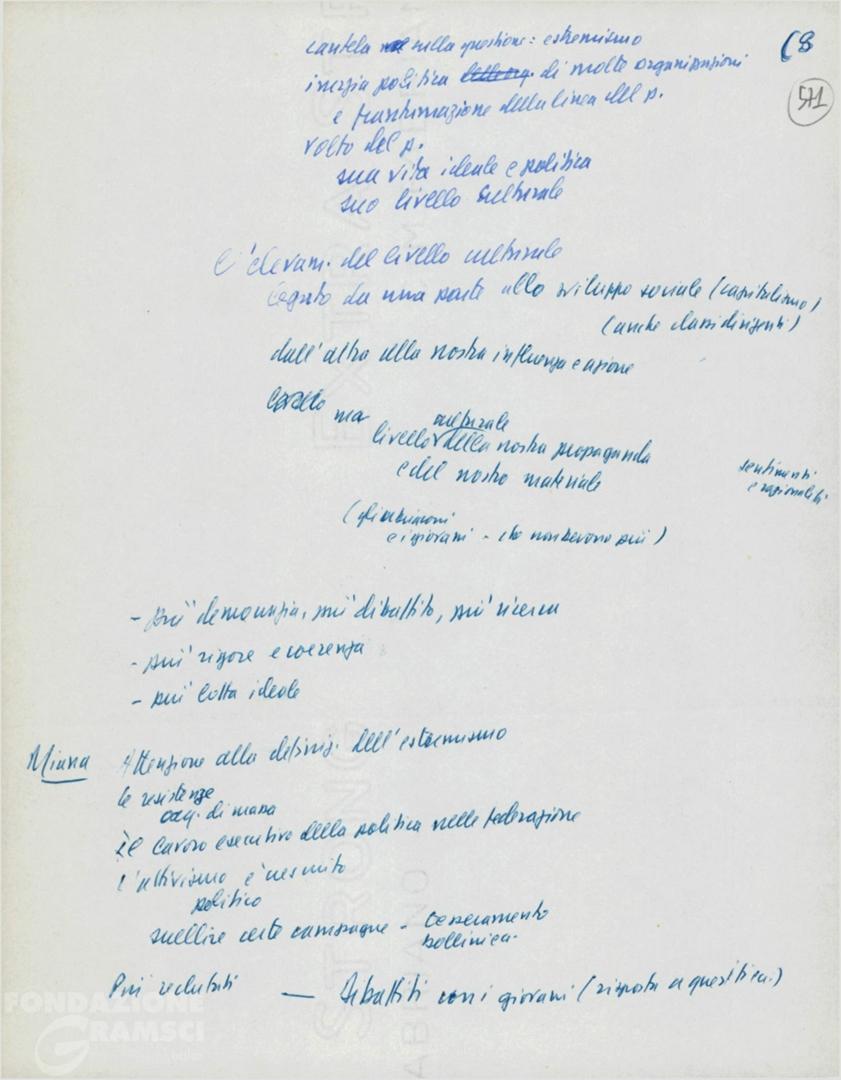 68
571
cautela sulla questione: estremismo
inerzia politica di molte organizzazioni
e frantumazione della linea del p.
volto del p.
sua vita ideale e politica
suo livello culturale
L'elevam. del livello culturale
legato da una parte allo sviluppo sociale (capitalismo)
(anche classi dirigenti)
dall'altro alla nostra influenza e azione
ma
culturale
livello della nostra propaganda
e del nostro materiale
sentimenti
e razionalità
(gli
e i giovani - che non bevono più)
- più democrazia, più dibattito, più ricerca
- più rigore e coerenza
- più lotta ideale
Miana Attenzione alla definiz. dell'estremismo
le resistenze
di massa
Il lavoro esecutivo della politica nelle federazione
l'attivismo è
politico
snellire certe campagne - tesseramento
Più reclutati — Dibattiti con i giovani (risposta a quesiti)
FONDAZIONE
GRAMSCI
STRONG
FABRIANO
EXTRA STRONG